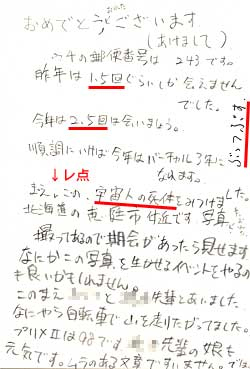 おめでとうございます
(あけまして)
ウチの郵便番号は 243 です。
昨年は 1.5回ぐらいしか会えません
でした。
今年は 2.5回は会いましょう。
ぶつぶす
順調にいけば今年はバーチャル3年に
なれます。
↓レ点
まえ、この、宇宙人の死体をみつけました
北海道の恵庭市付近です 写真
撮ってあるので期会があったら見せます
なにかこの写真を生かせるイベントをやるの
も良いかもしれません。
このまえ と 先輩とあいました
なにやら自転車で山を走りたがってました。
プリメⅡは98です 先輩の娘も
元気です。ムラのある文章ですいません。では